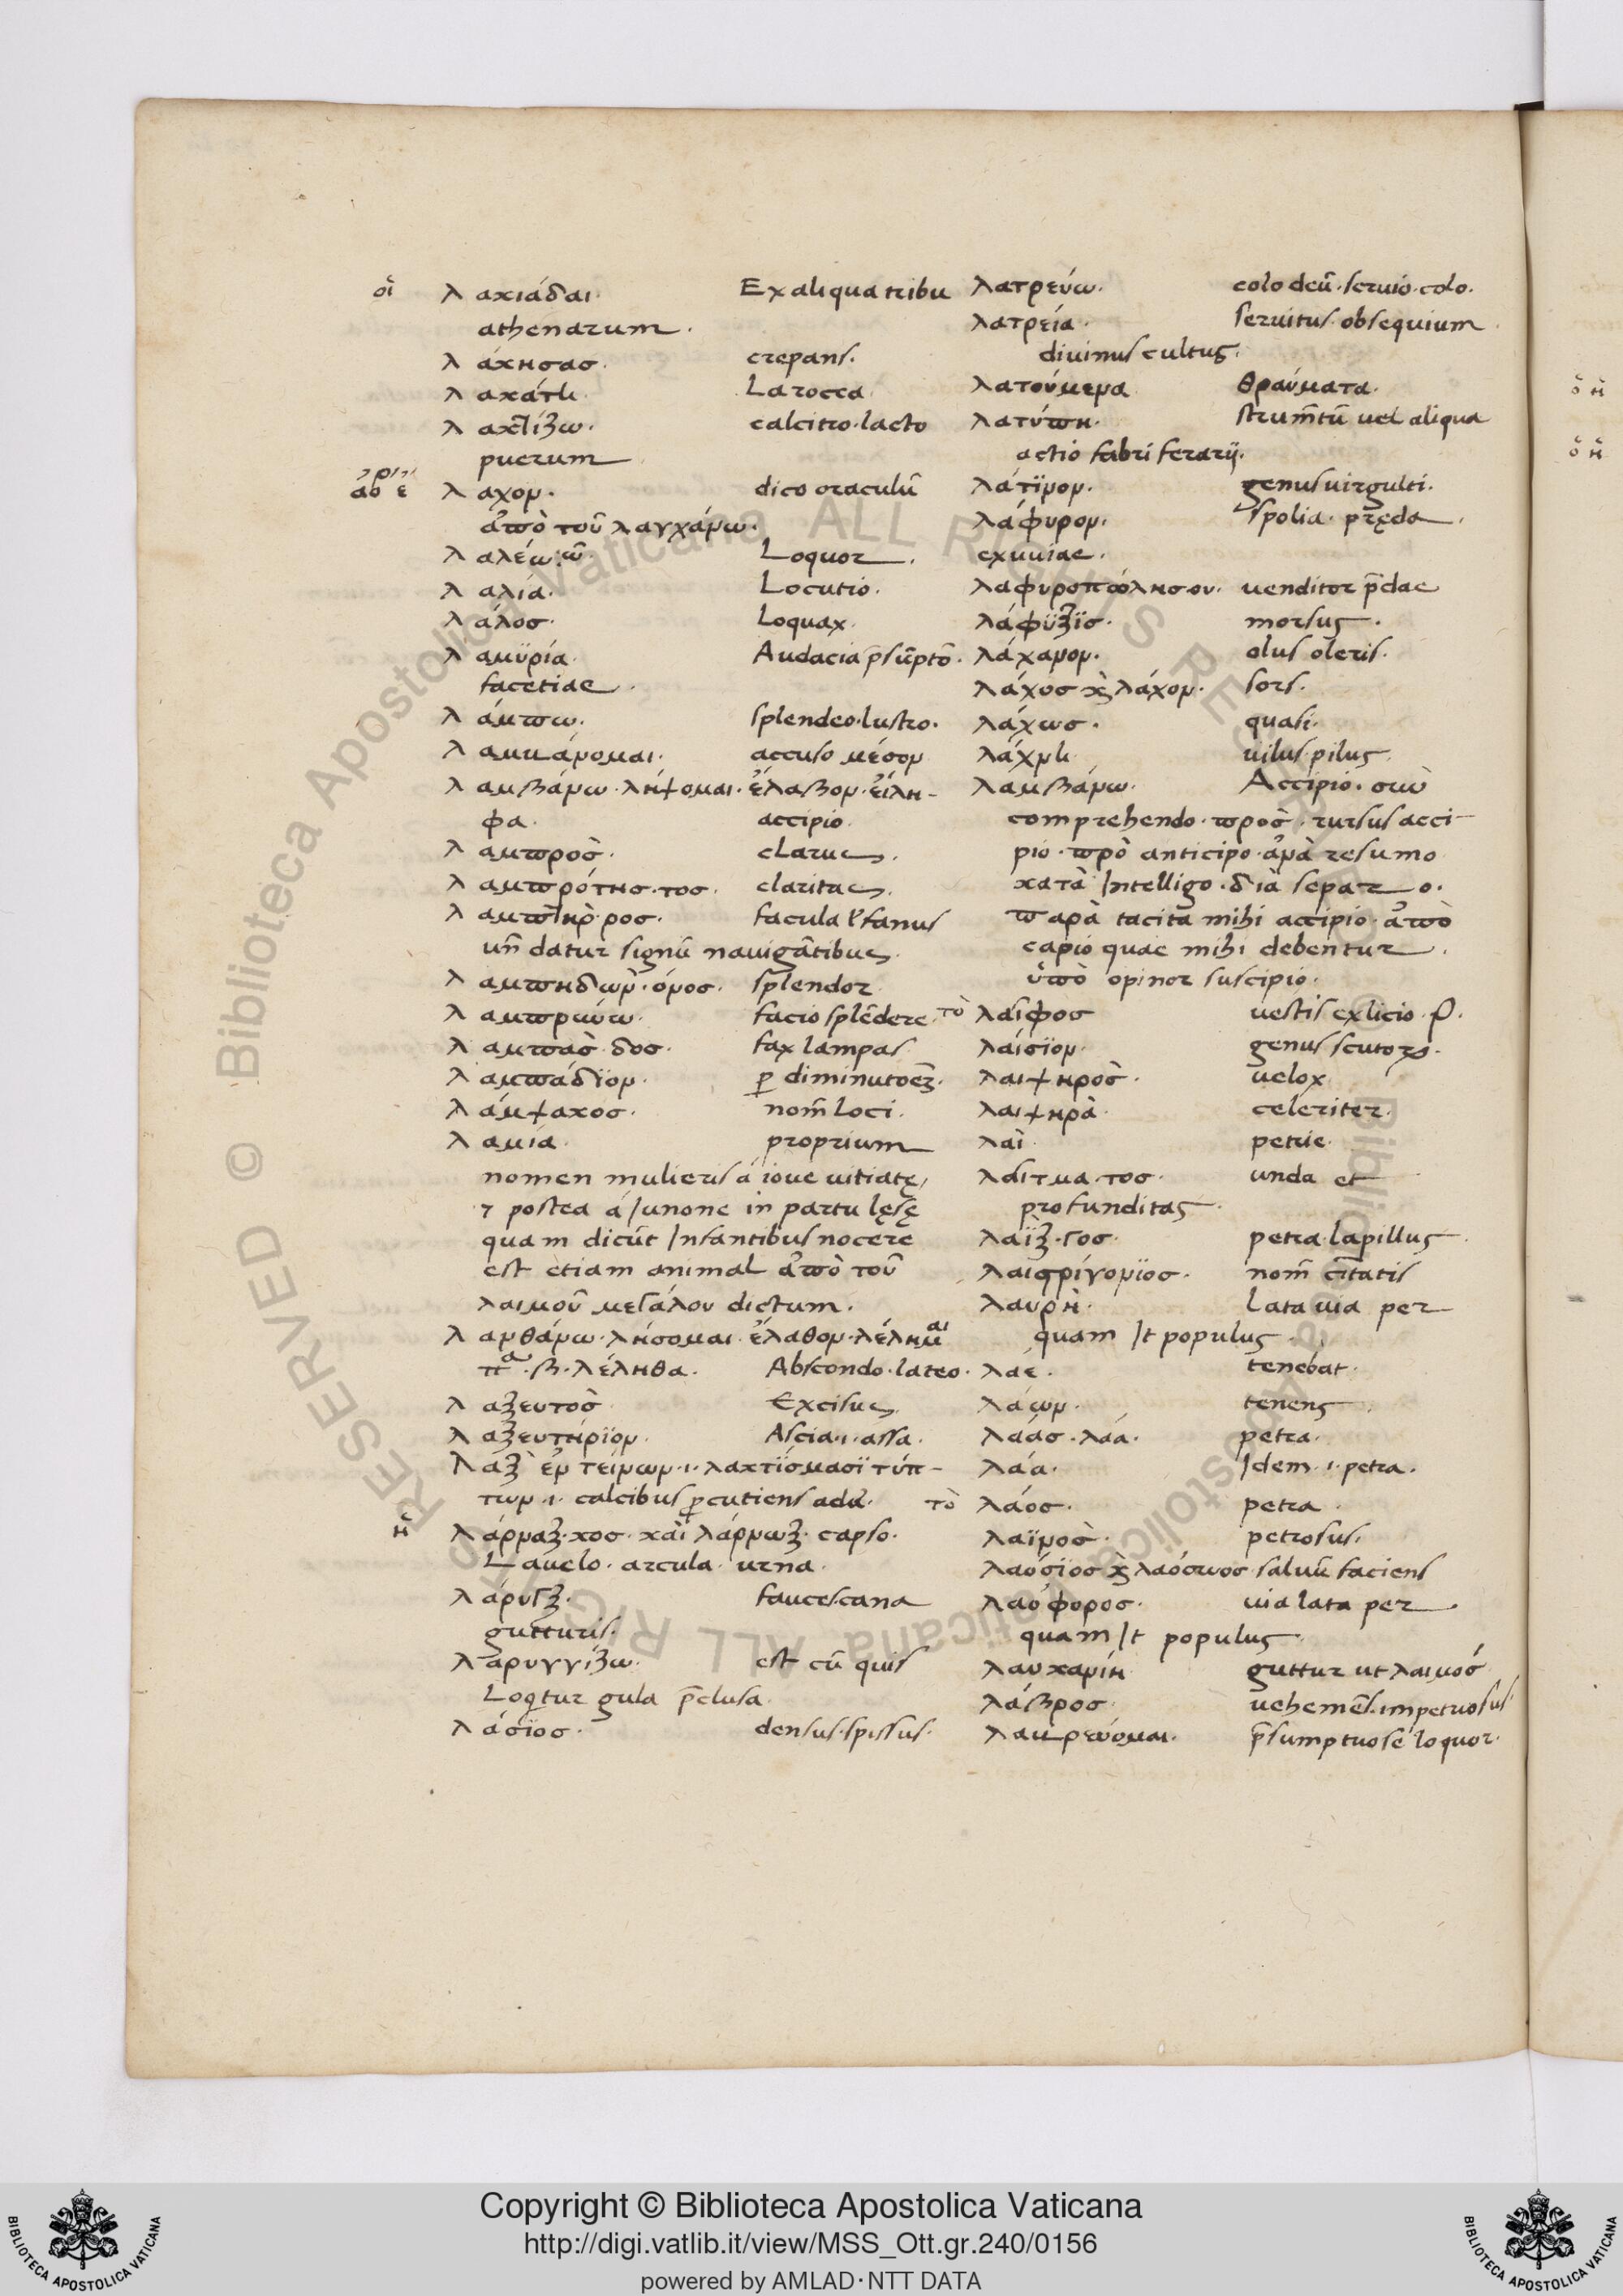 οἱ λακιάδαι. Ex aliqua tribu
athenarum.
λάκησας. crepans.
λακάτη. La rocca.
λακτίζω. calcitro. lacto
puerum
λαχον. dico oraculū
ἀπὸ τοῦ λαγχάνω.
λαλέω.ῶ. Loquor.
λαλιά. Locutio.
λάλος. Loquax.
λαμυρία. Audacia p̄sūptō.
facetiae.
λάμπω. splendeo. lustro.
accuso μέσον
λαμβάνω. λήψομαι. ἔλαβον. εἴλη-
φα. accipio.
λαμπρὸς. clarus.
λαμπρότης.τος. claritas.
λαμπτὴρ.ρος. facula ł fanus
un̄ datur signū nauigātibus.
λαμπηδὼν.όνος. splendor
λαμπρύνω. facio splēdere.
λαμπὰς.δος. fax lampas
λαμπάδιον. ꝑ diminutōeꝫ.
λάμψακος. nom̄ loci.
λαμία. proprium
nomen mulieris á ioue uitiatę,
⁊ postea á Iunone in partu lęsę
quam dicūt Infantibus nocere
est etiam animal ἀπὸ τοῦ
λαιμοῦ μεγάλου dictum.
λανθάνω. λήσομαι. ἔλαθον. λέλησμαι
πα. β. λέληθα. Abscondo. lateo.
λαξευτὸς. Excisus
λαξευτήριον. Ascia .i. assa.
λὰξ ἐν τείνων .i. λακτίσμασι τύπ-
των .i. calcibus ꝑcutiens
ἡ λάρναξ.κος. καὶ λάρνωξ. capso.
Lauelo. arcula. urna.
λάρυγξ. fauces. cana
gutturis.
λαρυγγίζω. est cū quis
Loq̄tur gula p̄clusa.
λάσιος. densus. spissus.
λατρεύω. colo deū. seruio. colo.
λατρεία. seruitus. obsequium
diuinus cultus.
λατούμενα θραύματα.
λατύπη. strum̄tū uel aliqua
actio fabri ferarij.
λάτινον. genus uirgulti.
λάφυρον. spolia. pręda.
exuuiae.
λαφυροπώλης ου. uenditor p̄dae
λάφυξις. morsus.
λάχανον. olus oleris.
λάχος κὶ λάχον. sors.
λάχως. quasi.
λάχνη. uilus. pilus.
λαμβάνω. Accipio. σὺν
comprehendo. πρὸς. rursus acci-
pio. πρὸ anticipo. ἀνὰ resumo
κατὰ Intelligo. διὰ separo.
παρὰ tacita mihi accipio. ἀπὸ
capio quae mihi debentur.
ὑπὸ opinor suscipio.
τὸ λαίφος uestis ex licio.
λαίσιον. genus scutoꝝ.
λαιψηρὸς. uelox
λαιψηρὰ. celeriter.
λαὶ. petrie.
λαίτμα.τος. unda et
profunditas.
λάϊξ.γος. petra. lapillus
λαιστρίγονιος. nom̄
λαυρὴ. Lata uia per
quam It populus.
λάε. tenebat.
λάων. tenens
λάας.λάα. petra.
λάα. Idem .i. petra.
τὸ λάος. petra.
λαϊνὸς. petrosus.
λαόσιος κὶ λαόσωος saluū faciens
λαοφόρος. uia lata per
quam It populus.
λαυκανίη guttur ut λαιμός
λάβρος. uehemēs. impetuosus.
λαβρεύομαι. p̄sumptuose loquor.
Copyright © Biblioteca Apostolica Vaticana
http://digi.vatlib.it/view/MSS_Ott.gr.240/0156
powered by AMLAD·NTT DATA
BIBLIOTECA APOSTOLICA VATICANA
BIBLIOTECA APOSTOLICA VATICANA
© Biblioteca Apostolica Vaticana ALL RIGHTS RESERVED